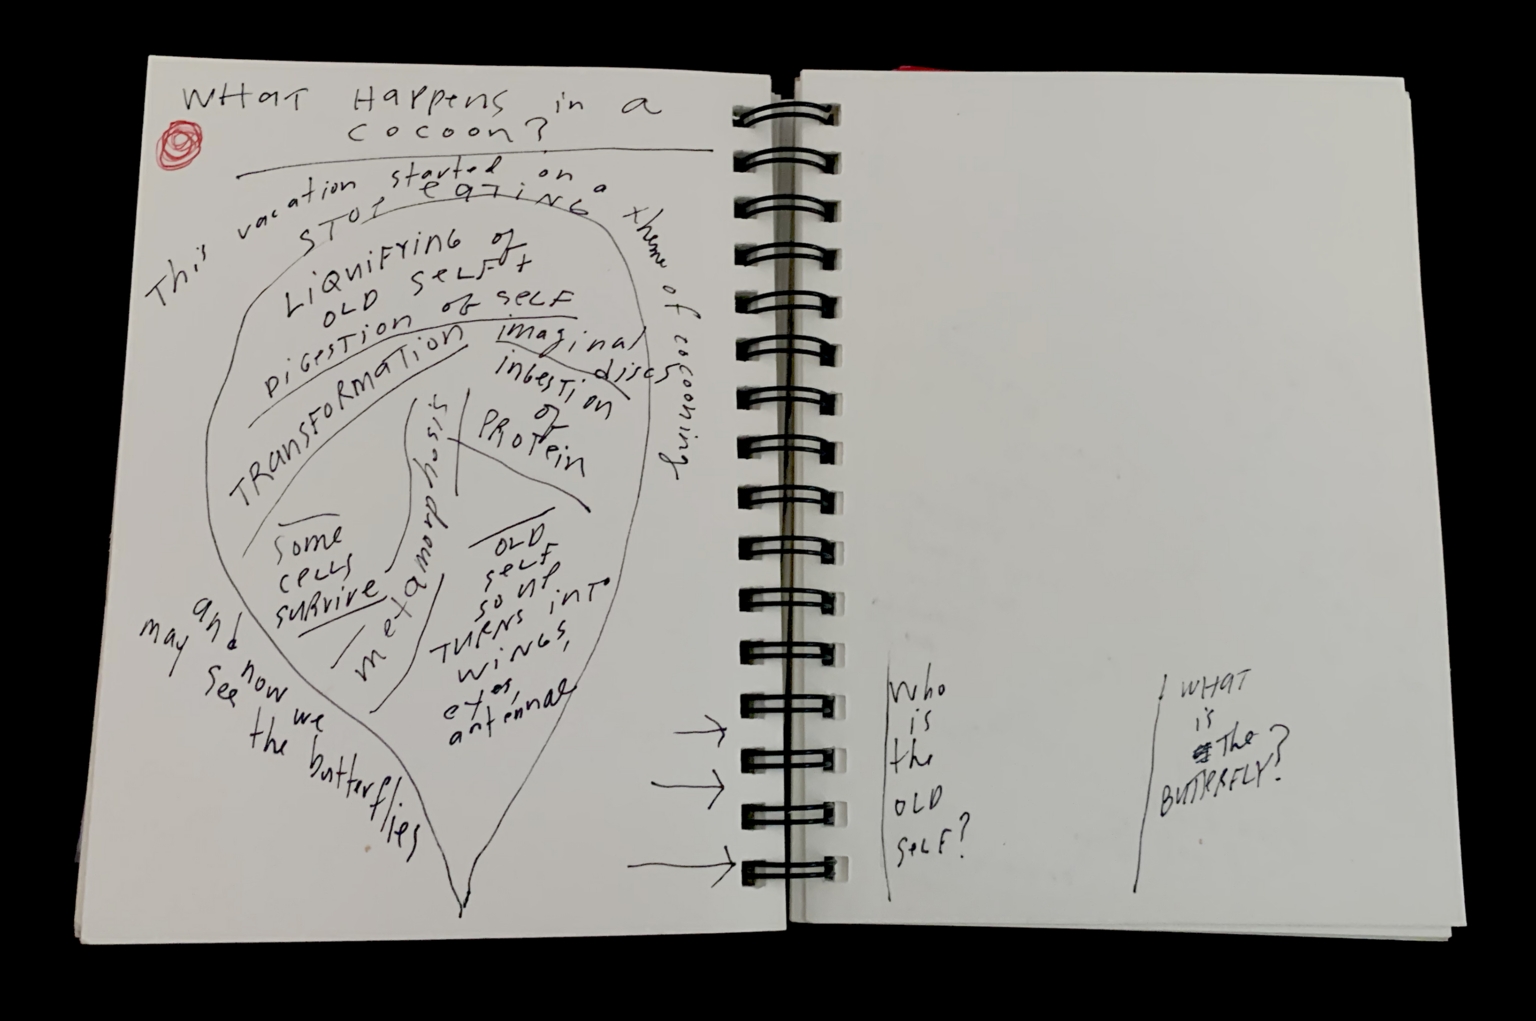 WHAT HAPPENS in a
COCOON?
This vacation started on a theme of cocooning
STOP eATING
LiQUiFYING of
OLD SELF +
DIGESTION of SELF
TRANSFORMATION
imaginal
discs
INGESTION
of
PROTein
metamorphosis
Some
cells
survive
OLD
self
soup
TURNS INTO
WINGS,
eyes,
antennae
and now we
may see the butterflies
Who
is
the
OLD
SELF?
WHAT
is
The
BUTTERFLY?